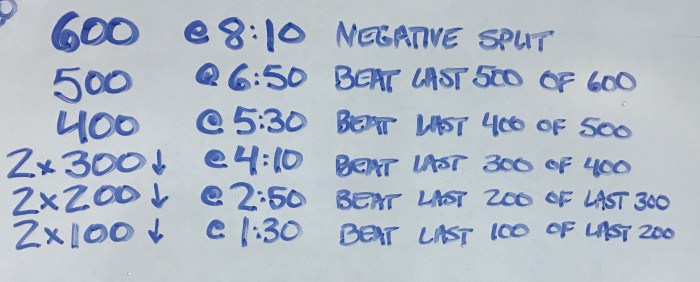 600 @ 8:10 NEGATIVE SPLIT
500 @ 6:50 BEAT LAST 500 OF 600
400 @ 5:30 BEAT LAST 400 OF 500
2x300↓ @ 4:10 BEAT LAST 300 OF 400
2x200↓ @ 2:50 BEAT LAST 200 OF LAST 300
2x100↓ @ 1:30 BEAT LAST 100 OF LAST 200